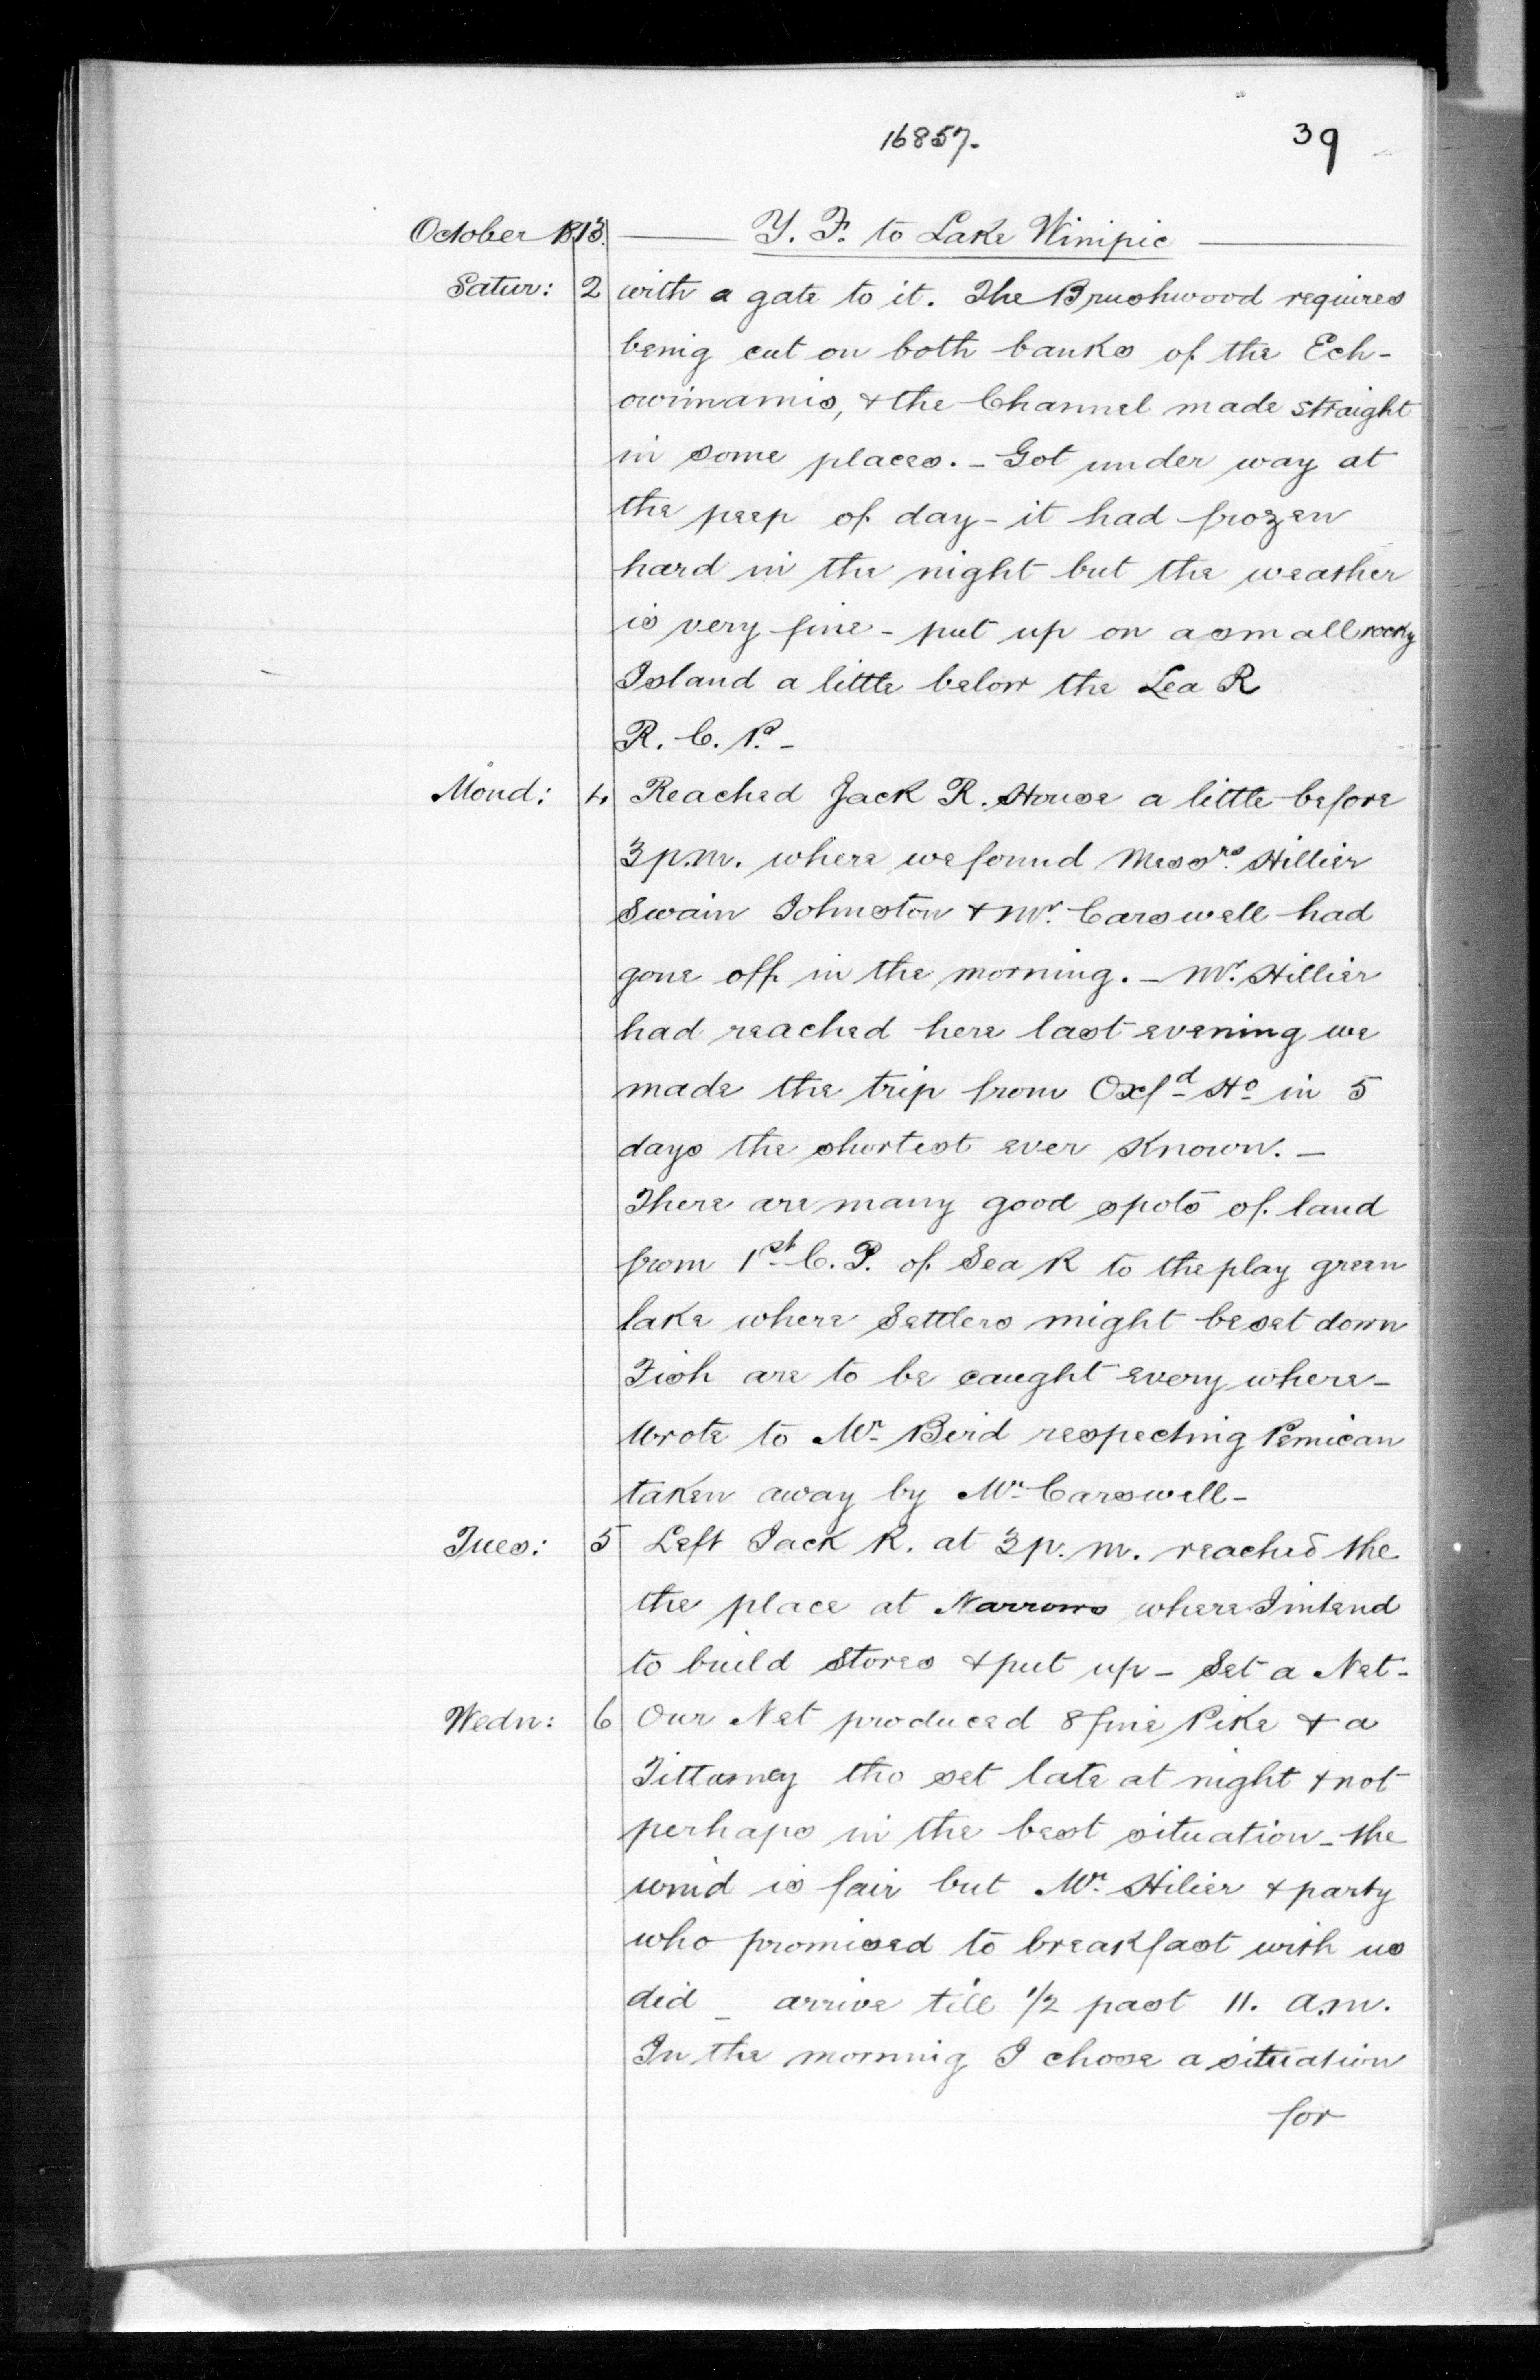 16857.
39
October 1813. Y. F. to Lake Winipic
Satur: 2 with a gate to it. The Brushwood requires
being cut on both banks of the Ech-
owinamis, & the Channel made straight
in some places. - Got under way at
the peep of day - it had frozen
hard in the night but the weather
is very fine - put up on a small rocky
Island a little below the Lea R
R. C. P. -
Mond: 4 Reached Jack R. House a little before
3 p.m. where we found Messrs. Hillier
Swain Johnston & Mr. Carswell had
gone off in the morning. - Mr. Hillier
had reached here last evening we
made the trip from Oxfd Ho in 5
days the shortest ever known. -
There are many good spots of land
from 1st C. P. of Sea R to the play green
lake where Settlers might be set down
Fish are to be caught every where -
Wrote to Mr. Bird respecting Pemican
taken away by Mr. Carswell -
Tues: 5 Left Jack R. at 3 p.m. reached the
the place at Narrows where I intend
to build Stores & put up - Set a Net -
Wedn: 6 Our Net produced 8 fine Pike & a
Tittamey tho set late at night & not
perhaps in the best situation - the
wind is fair but Mr. Hilier & party
who promised to breakfast with us
did _ arrive till 1/2 past 11. a.m.
In the morning I chose a situation
for